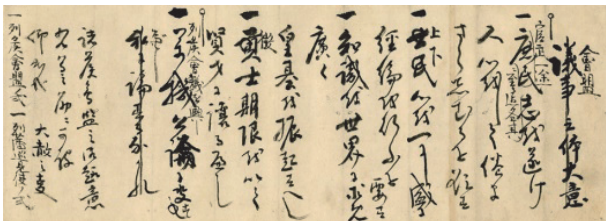 會盟
議事之体大意
官武一途
庶民ニ至ル迄各其
一庶民志を遂け
人心をして倦ま
さらしむるを欲す
上下
一士民心を一にし盛に
経綸を行ふを要す
一知識を世界に求め
廣く
皇基を振起すへし
徴
一貢士期限を以て
賢才に讓るへし
列侯會議を興し
一萬機公論に決し
私に論するなかれ
諸侯會盟之御趣意
右等之筋ニ可被
仰出哉 大赦之事
一列侯會盟之式 一列藩巡見使之式